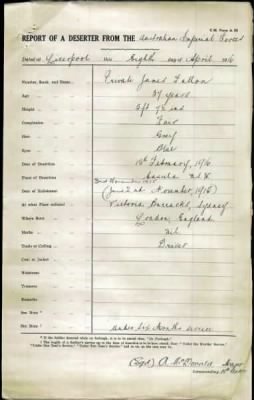 REPORT OF A DESERTER FROM THE Australian Imperial Forces
Dated at Liverpool this Eighth day of April 1916
Number, Rank, and Name Private James Fallon
Age 37 years
Height 5ft 7½ ins
Complexion Fair
Hair Grey
Eyes Blue
Date of Desertion 10th February, 1916
Place of Desertion N.S.W.
Date of Enlistment November, 1915)
At what Place enlisted Victoria Barracks, Sydney
Where Born London, England
Marks nil
Trade or Calling Driver
Coat or Jacket
Waistcoat
Trousers
Remarks
See Note
See Note Under six months service
(Sgd) A. McDonald Major
Commanding